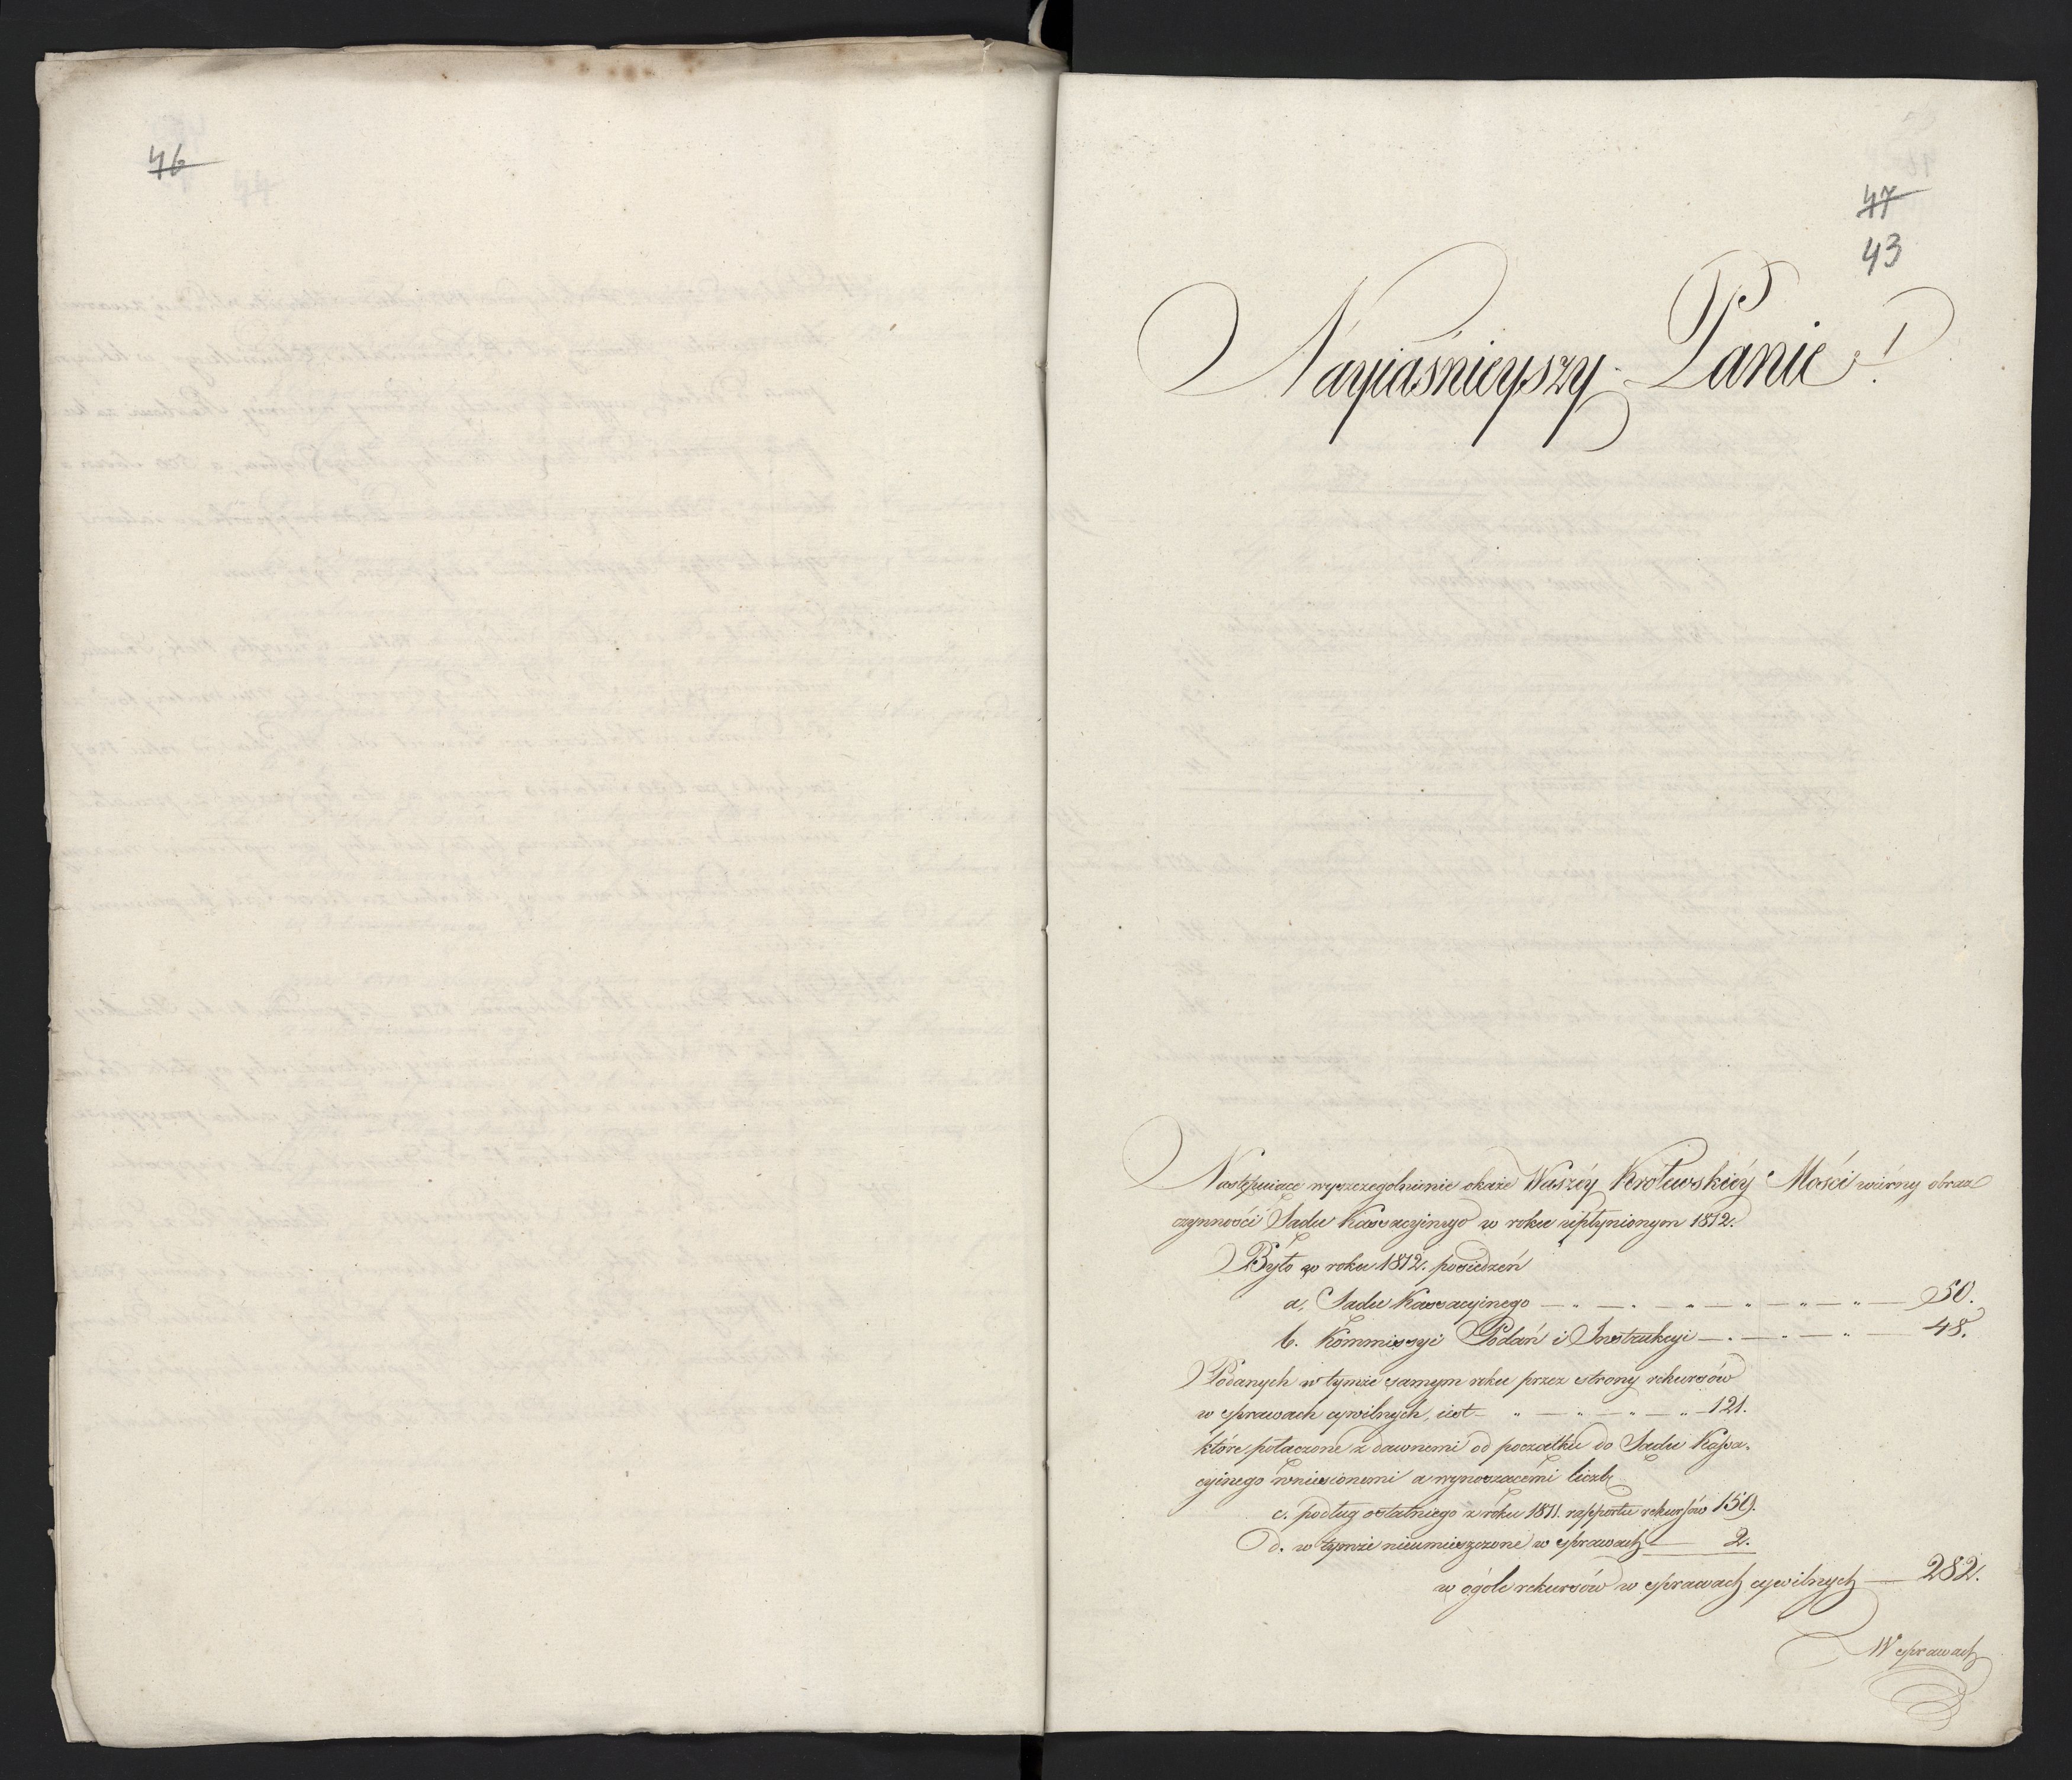 46
47
43
Nayiaśnieyszy Panie!
Następuiące wyszczegolnienie okaże Waszéy Królewskiéy Mości wierny obraz
czynności Sądu Kassacyinego w roku upłynionym 1812.
Było w roku 1812. posiedzeń
a, Sądu Kassacyinego — „ — „ — „ — „ — „ — „ — 50.
b. Kommissyi Podań i Instrukcyi — „ — „ — „ — 48.
Podanych w tymże samym roku przez strony rekursów
w sprawach cywilnych, iest — „ — „ — „ — „ — 121.
które połączone z dawnemi od początku do Sądu Kassa-
cyinego wniesionemi a wynoszącemi liczbę
c. podług ostatniego z roku 1811. rapportu rekursów 159.
d. w tymże nieumieszczone w sprawach — 2.
w ogóle rekursów w sprawach cywilnych — 282.
W sprawach